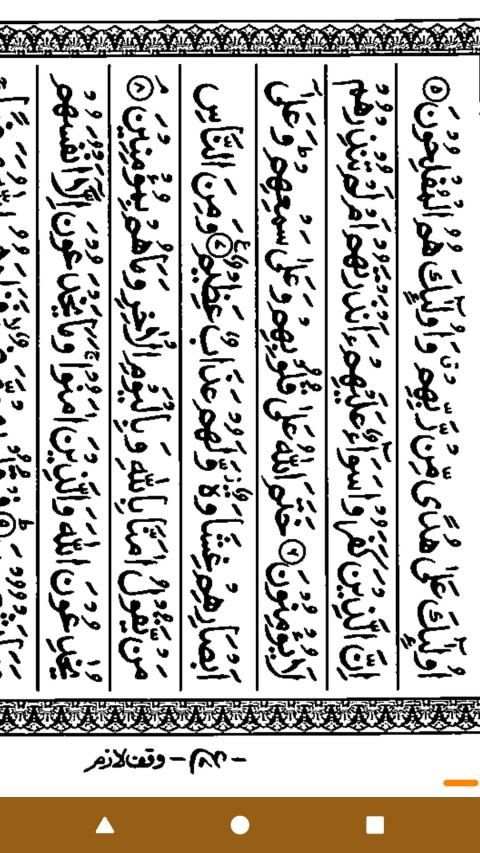 اُولٰٓئِكَ عَلٰى هُدًى مِّنْ رَّبِّهِمْ ۗ وَاُولٰٓئِكَ هُمُ الْمُفْلِحُوْنَ ۵
اِنَّ الَّذِيْنَ كَفَرُوْا سَوَآءٌ عَلَيْهِمْ ءَاَنْذَرْتَهُمْ اَمْ لَمْ تُنْذِرْهُمْ
لَا يُؤْمِنُوْنَ ۶ خَتَمَ اللّٰهُ عَلٰى قُلُوْبِهِمْ وَعَلٰى سَمْعِهِمْ ؕ وَعَلٰٓى
اَبْصَارِهِمْ غِشَاوَةٌ ز وَّلَهُمْ عَذَابٌ عَظِيْمٌ ۷ وَمِنَ النَّاسِ
مَنْ يَّقُوْلُ اٰمَنَّا بِاللّٰهِ وَبِالْيَوْمِ الْاٰخِرِ وَمَا هُمْ بِمُؤْمِنِيْنَ ۸ م
يُخٰدِعُوْنَ اللّٰهَ وَالَّذِيْنَ اٰمَنُوْا ۚ وَمَا يَخْدَعُوْنَ اِلَّآ اَنْفُسَهُمْ
وقف لازم